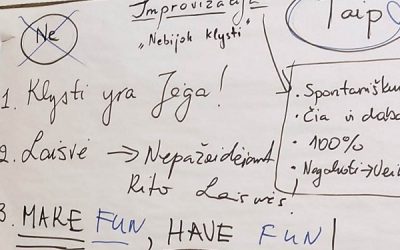 Ne
Improvizacija
„Nebijok klysti"
Taip
1. Klysti yra Jėga!
2. Laisvė → Nepažeidžiant
Kito Laisvės
3. MAKE FUN, HAVE FUN
• Spontanišku
• Čia ir daba
• 100%